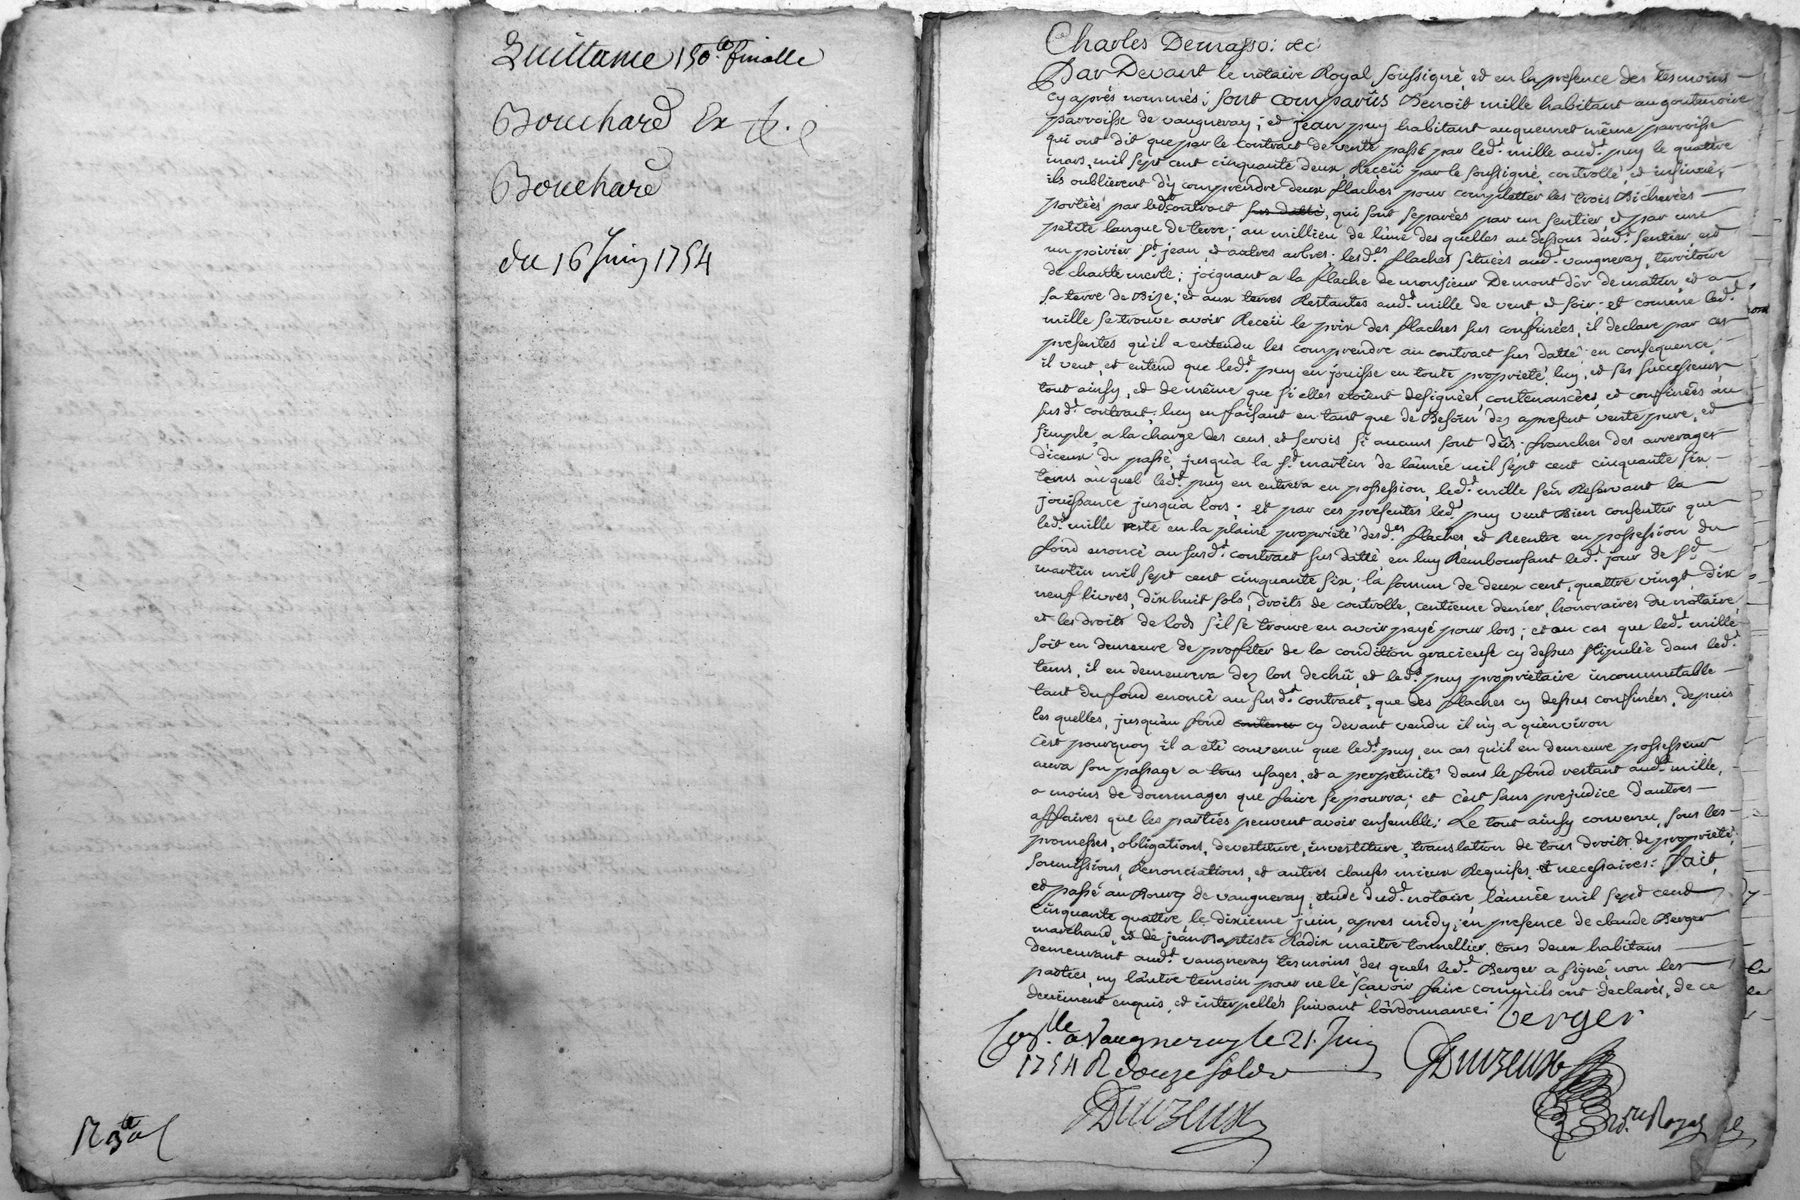 Quittance 150.tt finalle
Bouchard Ex
Bouchard
du 16 Juin 1754
Charles Demasso: &c
Par Devant le notaire Royal soussigné et en la presence des tesmoins
cy aprés nommés; sont comparûs Benoit mille habitant au goutenoire
parroisse de vaugneray; et jean puy habitant auquemet même parroisse
qui ont dit que par le contract de vente passé par led.t mille aud.t puy le quattre
mars, mil sept cent cinquante deux, Receü par le soussigné, controllé et insinué,
ils oublierent d'y comprendre deux flaches pour completter les trois Bicherées
portées par led.t contract sus datté, qui sont separées par un sentier et par une
petite langue de terre; au millieu de l'une des quelles au dessous dud.t sentier, est
un poirier s.t jean, et autres arbres; lesd.es flaches situées aud.t vaugneray, territoire
de chante merle; joignant a la flache de monsieur Demont d'ôr de matin, et a
sa terre de Bize; et aux terres Restantes aud.t mille de vent, et soir; et comme led.t
mille se trouve avoir Receü le prix des flaches sus confinées, il declare par ces
presentes qu'il a entendu les comprendre au contract sus datté; en consequence
il veut, et entend que led.t puy en jouisse en toute proprieté, luy, et ses successeurs
tout ainsy, et de même que si elles etoient designées, contenancées, et confinées au
susd.t contract; luy en faisant en tant que de Besoin, dez apresent vente pure, et
simple, a la charge des cens, et servis si aucuns sont dûs; franches des arrerages
d'iceux du passé, jusqu'a la s.t martin de l'année mil sept cent cinquante six
tems auquel led.t puy en entrera en possession, led.t mille s'en Reservant la
jouissance jusqu'a lors; et par ces presentes led.t puy veut Bien consentir que
led.t mille reste en la plaine proprieté desd.es flaches et Reentre en possession du
fond enoncé au susd.t contract sus datté, en luy Remboursant led.t jour de s.t
martin mil sept cent cinquante six; la somme de deux cent, quattre vingt dix
neuf livres, dix huit sols, droits de controlle, centieme denier, honoraires du notaire,
et les droits de lods s'il se trouve en avoir payé pour lors; et au cas que led.t mille
soit en demeure de profiter de la condition gracieuse cy dessus stipulée dans led.t
tems, il en demeurera dez lors dechü, et led.t puy proprietaire incommutable
tant du fond enoncé au susd.t contract, que des flaches cy dessus confinées, depuis
les quelles, jusqu'au fond contenu cy devant vendu il n'y a qu'environ
c'est pourquoy il a eté convenu que led.t puy, en cas qu'il en demeure possesseur
aura son passage a tous usages, et a perpetuité dans le fond restant aud.t mille,
a moins de dommages que faire se pourra; et c'est sans prejudice d'autres
affaires que les parties peuvent avoir ensemble; Le tout ainsy convenu, sous les
promesses, obligations, devestiture, investiture, translation de tous droits de proprieté,
soumissions, Renonciations, et autres clauses mieux Requises, et necessaires: fait,
et passé au Bourg de vaugneray, etude dud.t notaire, l'année mil sept cent
cinquante quattre le dixieme juin, apres midy; en presence de claude Berger
marchand, et de jean Baptiste Hadix maitre tonnellier, tous deux habitans
demeurant aud.t vaugneray tesmoins des quels led.t Berger a signé, non les
parties, ny l'autre temoin pour ne le sçavoir faire comm'ils ont declarés, de ce
deuëment enquis, et interpellés suivant l'ordonnance;
berger
Con.lle a Vaugneray le 21. Juin
1754 R douze sols
Duvzeux
Duvzeux
N.re Royal